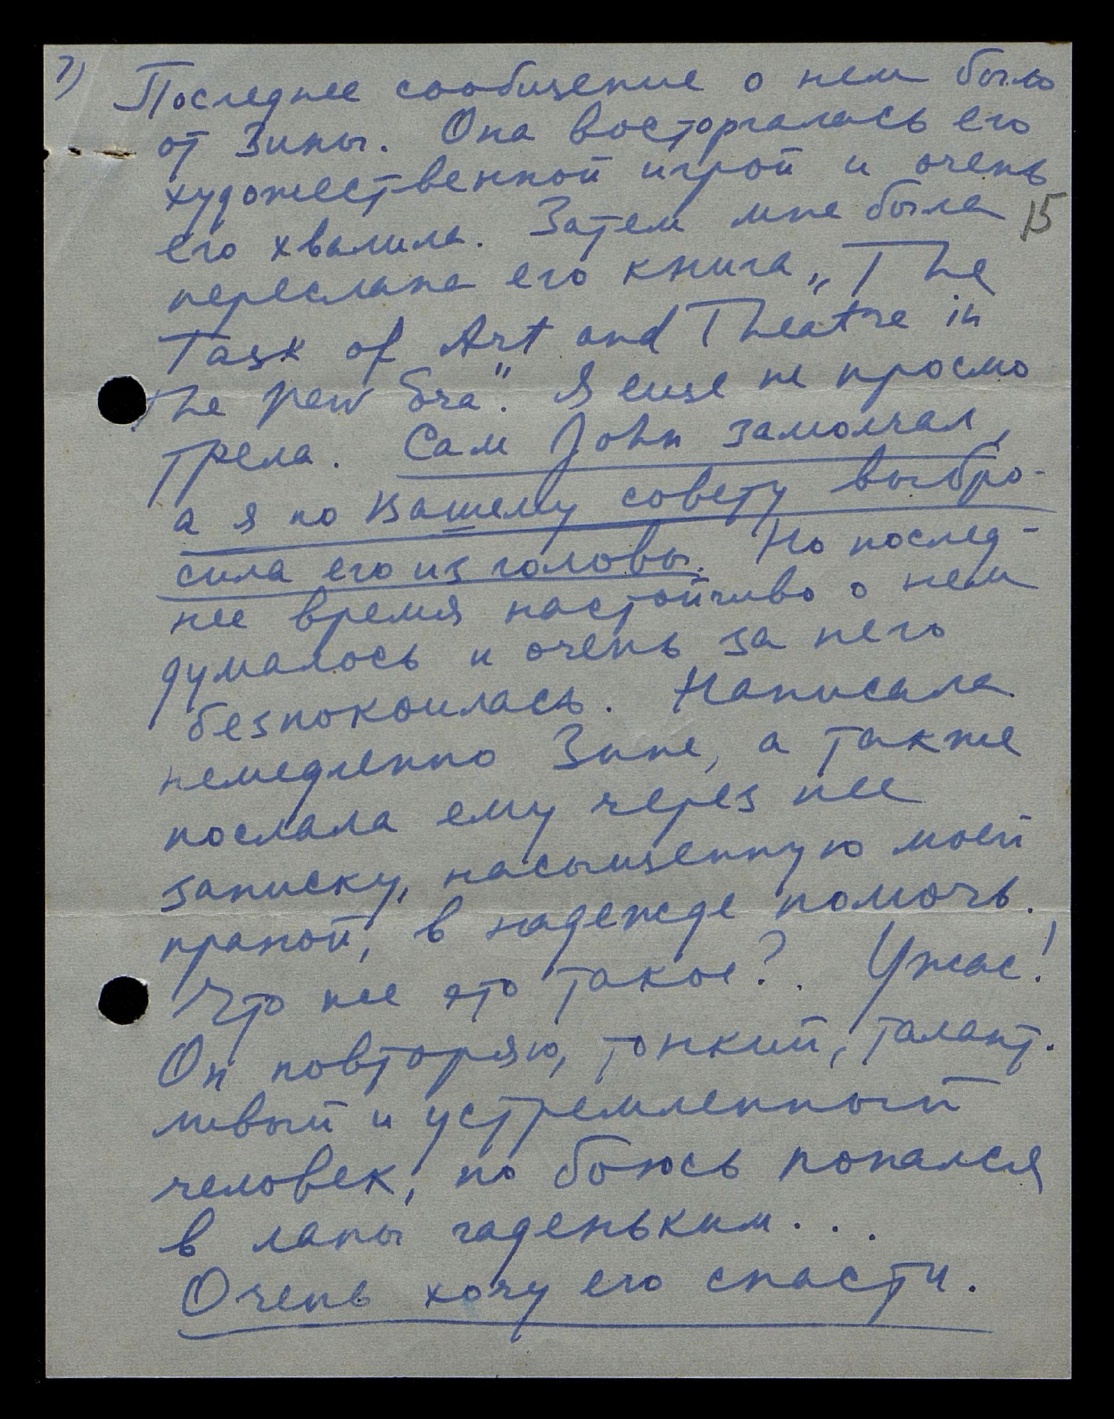 7) Последнее сообщение о нем было
от Зины. Она восторгалась его
художественной игрой и очень
его хвалила. Затем мне была
15
переслана его книга „The
Task of Art and Theatre in
the New Era". Я еще не просмо
трела. Сам John замолчал,
а я по Вашему совету выбро-
сила его из головы. Но послед-
нее время настойчиво о нем
думалось и очень за него
безпокоилась. Написала
немедленно Зине, а также
послала ему через нее
записку, насыщенную моей
праной, в надежде помочь.
Что же это такое? Ужас!
Он повторяю, тонкий, талант.
ливый и устремленный
человек, но боюсь попался
в лапы гаденьким...
Очень хочу его спасти.